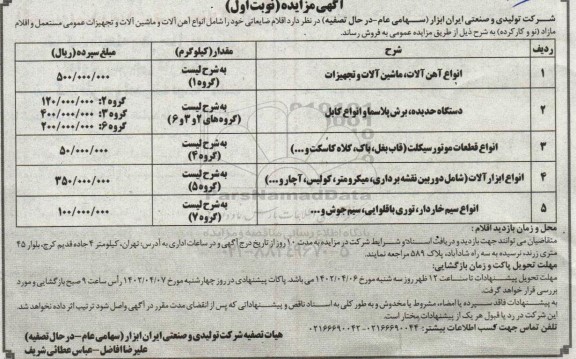 آگهی مزایده (نوبت اول)
شرکت تولیدی و صنعتی ایران ابزار (سهامی عام -در حال تصفیه) در نظر دارد اقلام ضایعاتی خود را شامل انواع آهن آلات و ماشین آلات و تجهیزات عمومی مستعمل و اقلام
مازاد (نو و کارکرده) به شرح ذیل از طریق مزایده عمومی به فروش رساند.
ردیف شرح مقدار (کیلوگرم) مبلغ سپرده (ریال)
۱ انواع آهن آلات، ماشین آلات و تجهیزات به شرح لیست (گروه ۱) ۵۰۰/۰۰۰/۰۰۰
۲ دستگاه حدیده، برش پلاسما و انواع کابل به شرح لیست (گروه های ۲ و ۳ و ۶) گروه ۲: ۱۲۰/۰۰۰/۰۰۰
گروه ۳: ۴۰۰/۰۰۰/۰۰۰
گروه ۶: ۲۰۰/۰۰۰/۰۰۰
۳ انواع قطعات موتور سیکلت (قاب بغل، باک، کلاه کاسکت و...) به شرح لیست (گروه ۴) ۵۰/۰۰۰/۰۰۰
۴ انواع ابزار آلات (شامل دوربین نقشه برداری، میکرومتر، کولیس، آچار و...) به شرح لیست (گروه ۵) ۳۵۰/۰۰۰/۰۰۰
۵ انواع سیم خاردار، توری باقلوایی، سیم جوش و... به شرح لیست (گروه ۷) ۱۰۰/۰۰۰/۰۰۰
ParsNamadData
۰۲۱-۸۸۳۴۹۶۷۰-۵
محل و زمان بازدید اقلام:
متقاضیان می توانند جهت بازدید و دریافت اسناد و شرایط شرکت در مزایده به مدت ۱۰ روز از تاریخ درج آگهی و در ساعات اداری به آدرس: تهران، کیلومتر ۴ جاده قدیم کرج، بلوار ۴۵
متری زرند، نرسیده به سه راه شادآباد، پلاک ۵۸۹ مراجعه نمایند.
مهلت تحویل پاکت و زمان بازگشایی:
مهلت تحویل پیشنهادات تا ساعت ۱۲ ظهر روز سه شنبه مورخ ۱۴۰۲/۰۴/۰۶ می باشد. پاکات پیشنهادی در روز چهارشنبه مورخ ۱۴۰۲/۰۴/۰۷ رأس ساعت ۹ صبح بازگشایی و مورد
بررسی قرار خواهد گرفت.
به پیشنهادات فاقد سپرده یا امضاء، مشروط یا مخدوش و به طور کلی به اسناد ناقص و پیشنهاداتی که پس از انقضای مدت مقرر در آگهی واصل شود ترتیب اثر داده نخواهد شد.
این شرکت در رد یا قبول هر یک از پیشنهادات مختار است.
تلفن تماس جهت کسب اطلاعات بیشتر: ۰۲۱۶۶۶۹۰۰۴۴-۰۲۱۶۶۶۹۰۰۴۲
هیات تصفیه شرکت تولیدی و صنعتی ایران ابزار (سهامی عام-در حال تصفیه)
علیرضا افاضل -عباس عطائی شریف